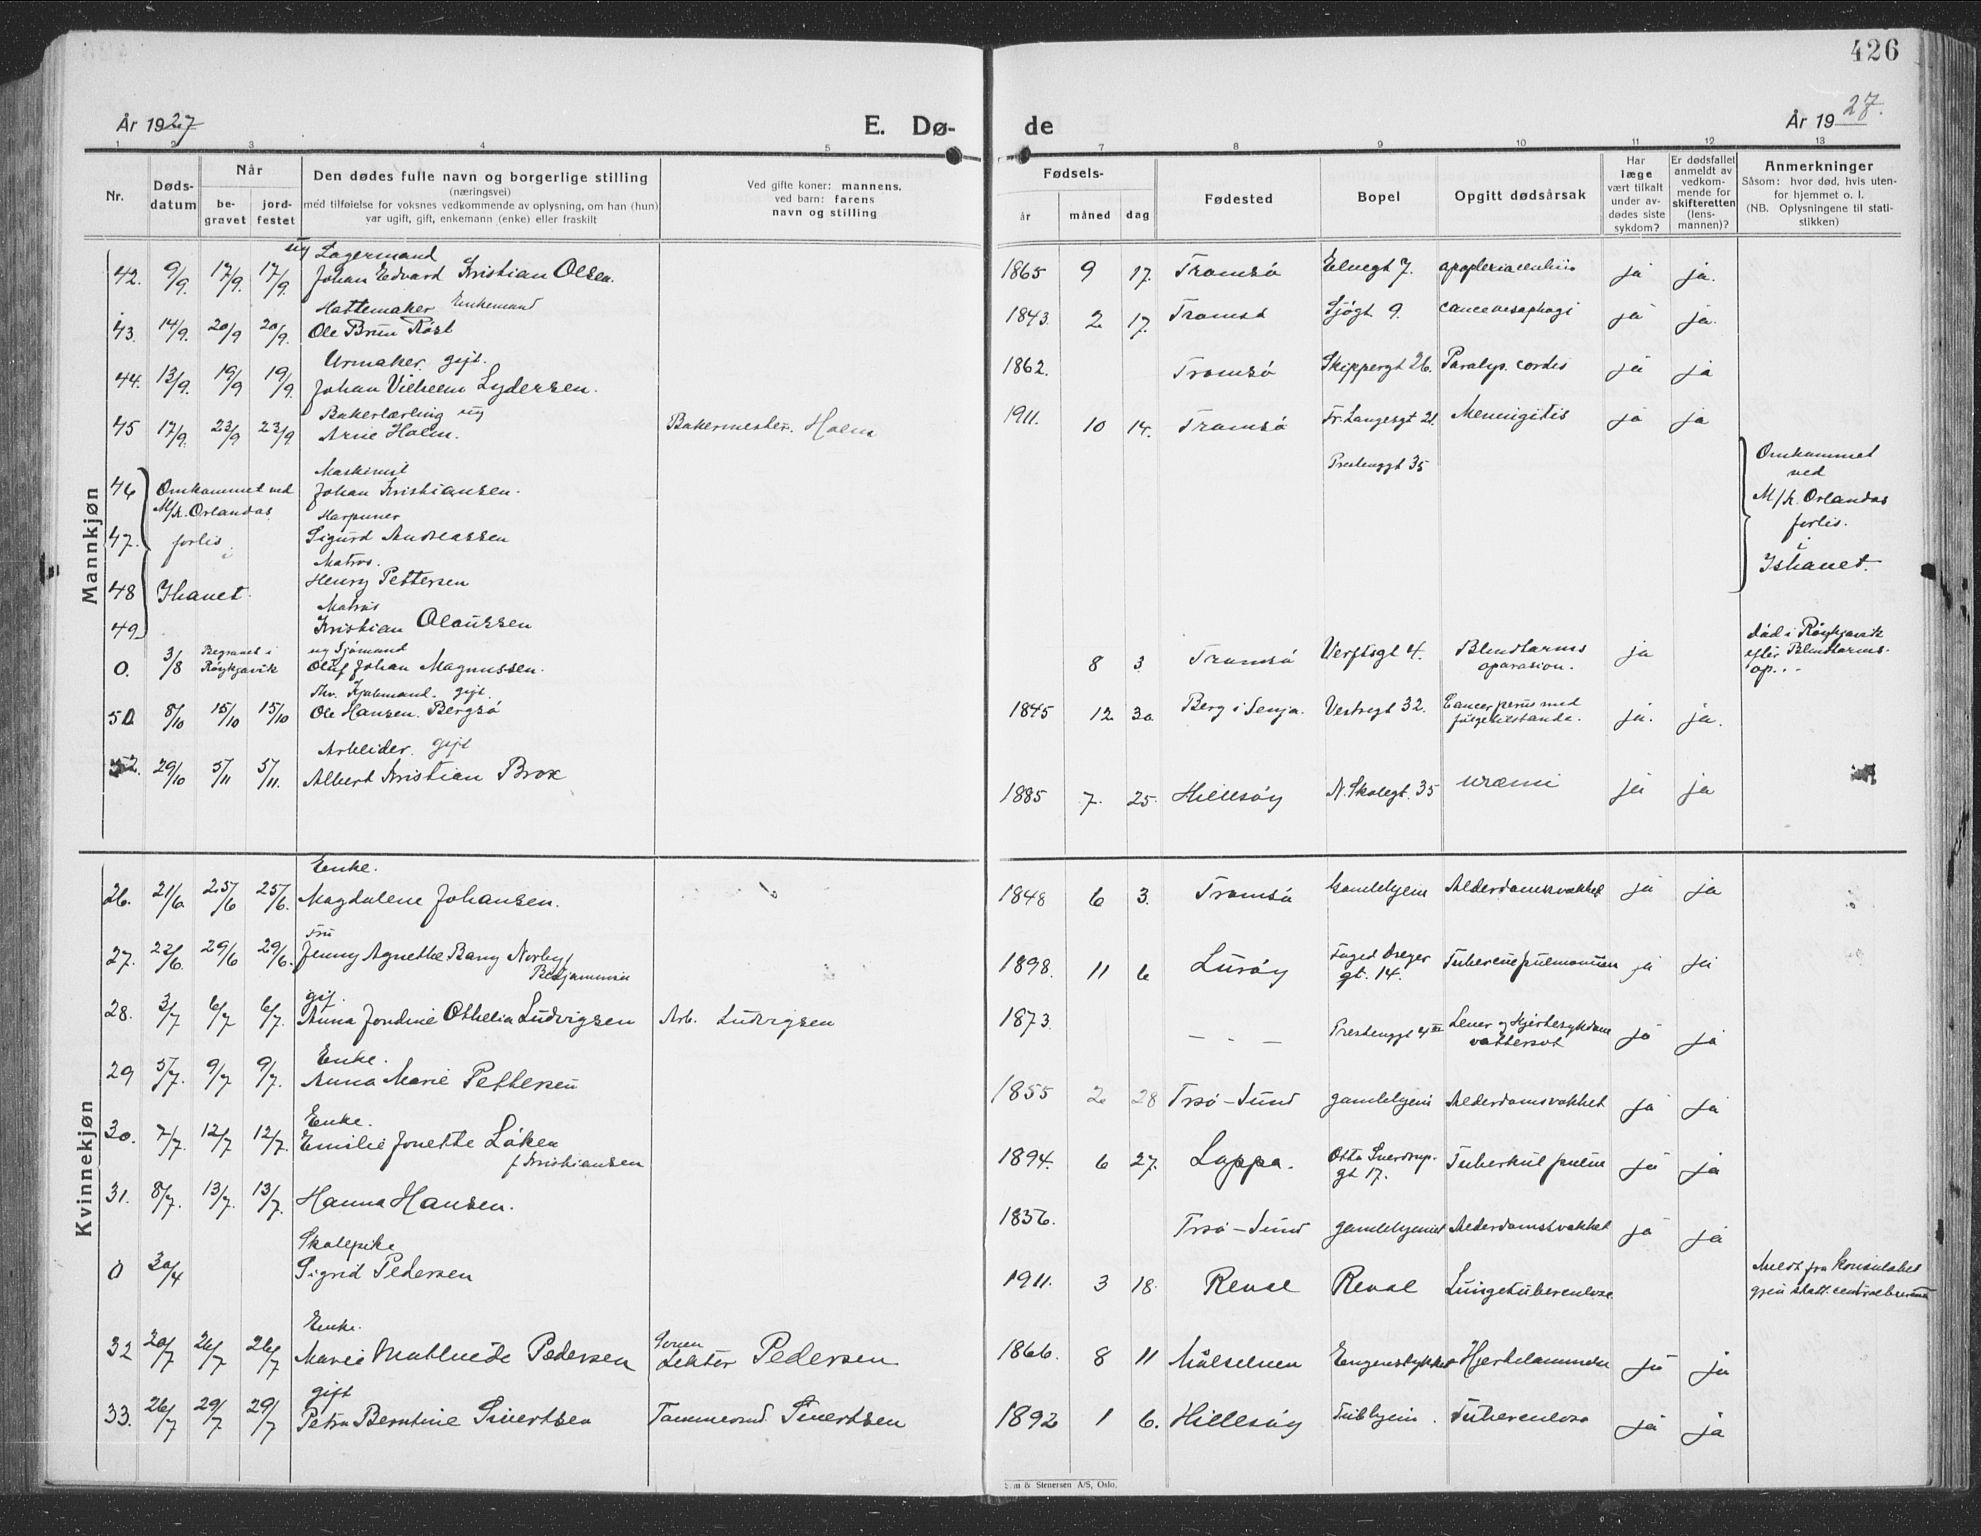 426
År 1927
E. Dø-
de
År 1927.
1 2 3 4 5 7 8 9 10 11 12 13
Nr.
Døds-
datum
Når
be-
gravet
jord-
festet
Den dødes fulle navn og borgerlige stilling
(næringsvei)
med tilføielse for voksnes vedkommende av oplysning, om han (hun)
var ugift, gift, enkemann (enke) eller fraskilt
Ved gifte koner: mannens,
ved barn: farens
navn og stilling
Fødsels-
år
måned
dag
Fødested
Bopel
Opgitt dødsårsak
Har
læge
vært tilkalt
under av-
dødes siste
sykdom?
Er dødsfallet
anmeldt av
vedkom-
mende for
skifteretten
(lens-
mannen)?
Anmerkninger
Såsom: hvor død, hvis uten-
for hjemmet o. l.
(NB. Oplysningene til stati-
stikken)
Mannkjøn
ug Lagermand
42. 9/9. 17/9. 17/9. Johan Edvard Kristian Olsen. 1865 9 17. Tromsø Elvegt 7. ja ja.
Hattemaker Enkemand
43. 14/9. 20/9 20/9. Ole Brun Røst 1843. 2 17. Tromsø Sjøgt 9. ja ja.
Urmaker. gift.
44. 13/9. 19/9 19/9. Johan Vilhelm Lydersen. 1862. Tromsø Skippergt 26. Paralyp. cordis ja ja
Bakerlærling ug
45 17/9. 23/9 23/9. Arne Holm. Bakermester. Holm 1911. 10 14. Tromsø Fr. Langesgt 21. Mennigitis ja ja
Maskinist Prestenggt 35
46 Omkommet ved Johan Kristiansen. Omkommet
ved
M/k. Orlandos Harpuner M/k. Orlandos
47. forlis Sigurd Andreassen forlis.
i Matros. i
48 Ishavet. Henry Pettersen Ishavet.
Matros
49 Kristian Olaussen
ug Sjømand
0. 3/8 Begravet i Røykjavik Oluf Johan Magnussen. 8 3 Tromsø Verftsgt 4. Blindtarms
oparasion. ja død i Røykjavik
efter Blindtarms-
op...
fhv. gift.
50 8/10 15/10 15/10 Ole Hansen Bergsø 1845 12 30 Berg i Senja. Vestregt 32. Cancer penis med
følgetilstande. ja. ja.
Arbeider. gift
52. 29/10 5/11 5/11. Albert Kristian Brox 1885 7. 25. Hillesøy N. Skolegt. 35 uræmi ja ja
Kvinnekjøn
Enke.
26. 21/6 25/6 25/6. Magdalene Johansen. 1848 6 3. Tromsø Gamlehjem Alderdomssvakhet ja ja
Fru
27. 22/6. 29/6 29/6. Jenny Agnethe Bang Norby,
Benjaminsen 1898. 11 6 Lurøy
gt. 14. ja ja
gift.
28. 3/7 6/7 6/7. Anna Jordine Othelia Ludvigsen Arb. Ludvigsen 1873. – . – Prestenggt 4 III Lever og Hjertesykdom
vattersot ja ja
Enke.
29 5/7. 9/7 9/7. Anna Marie Pettersen 1855 2 28 Trsø-Sund gamlehjem Alderdomsvakhet ja ja
Enke.
30. 7/7. 12/7 12/7. Emilie Jonette Løken
f. Kristiansen 1894. 6 27. Loppa. Otto Sverdrup.
gt 17. Tuberkul pulm ja ja
31. 8/7. 13/7. 13/7. Hanna Hansen. 1836. Trsø-Sund gamlehjemmet Alderdomsvakhet ja ja
Skolepike
0 30/4 Sigrid Pedersen 1911. 3 18. Reval Reval Lungetuberculose. Meldt fra konsulatet
gjen statt. centralbureau
Enke.
32 20/7 26/7 26/7 Marie Mathilde Pedersen Lektor Pedersen 1866. 8 11 Målselven ja ja
gift
33. 26/7 29/7 29/7 Petra Berntine Sivertsen Tømmermd. Sivertsen 1892 1 6. Hillesøy Tubhjem. Tuberculose ja ja
& Stenersen A/S, Oslo.